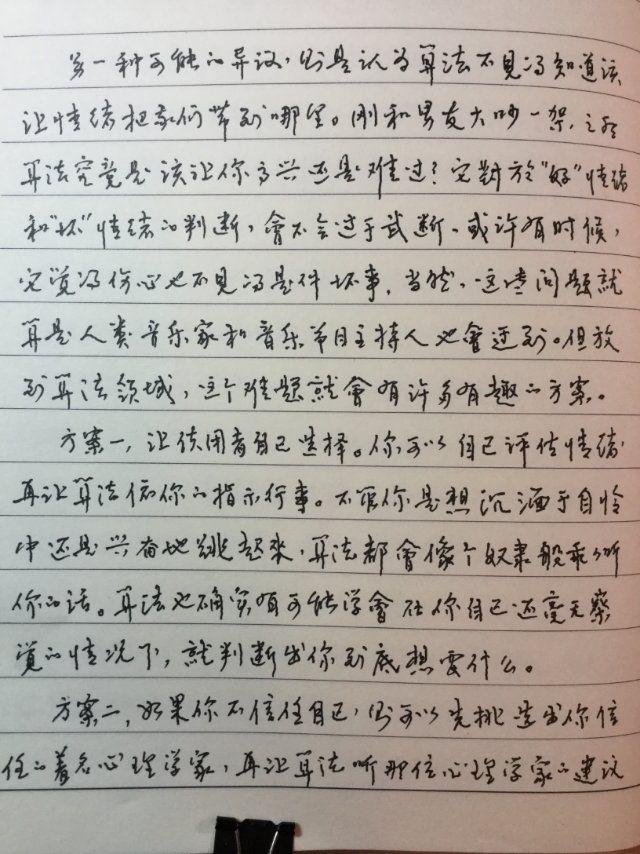 另一种可能的异议，则是认为算法不见得知道该
让情绪把我们带到哪里。刚和男友大吵一架，之后
算法究竟是该让你高兴还是难过？它對於“好”情绪
和“坏”情绪的判断，會不会过于武断。或许有时候，
它觉得伤心也不见得是件坏事，当然，这些问题就
算是人类音乐家和音乐节目主持人也會遇到。但放
到算法领域，这个难题就會有许多有趣的方案。
方案一，让使用者自己选择。你可以自己评估情绪
再让算法依你的指示行事。不管你是想沉湎于自怜
中还是兴奋地跳起來，算法都會像个奴隶般乖乖听
你的话。算法也确实有可能学會在你自己还毫无察
觉的情况下，就判断出你到底想要什么。
方案二，如果你不信任自己，则可以先挑选出你信
任的著名心理学家，再让算法听那位心理学家的建议